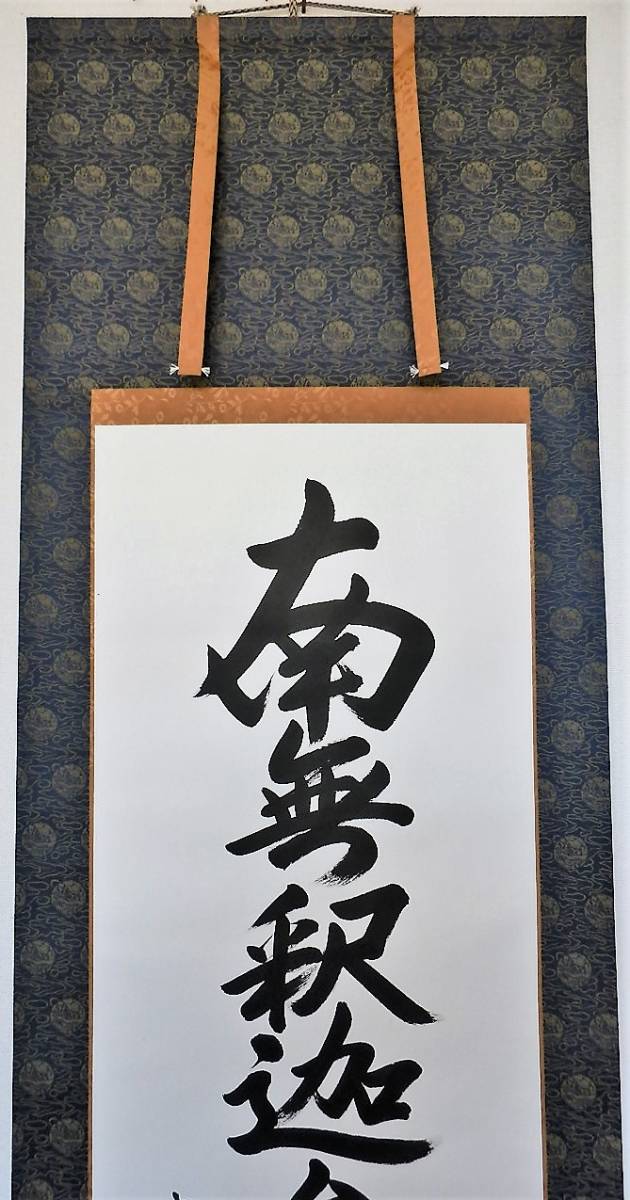 南無釈迦